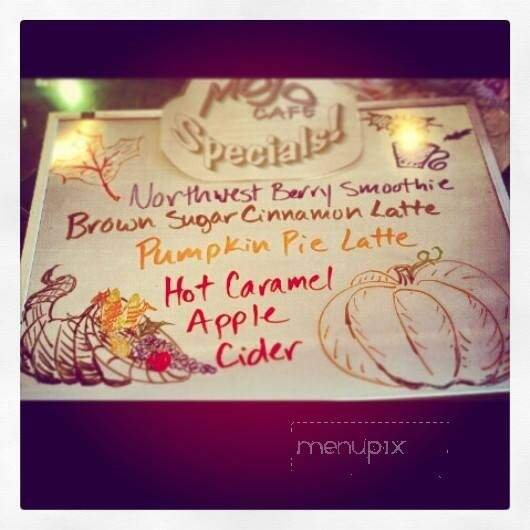 Mojo
Cafe
Specials!
Northwest Berry Smoothie
Brown Sugar Cinnamon Latte
Pumpkin Pie Latte
Hot Caramel
Apple
Cider
menupix